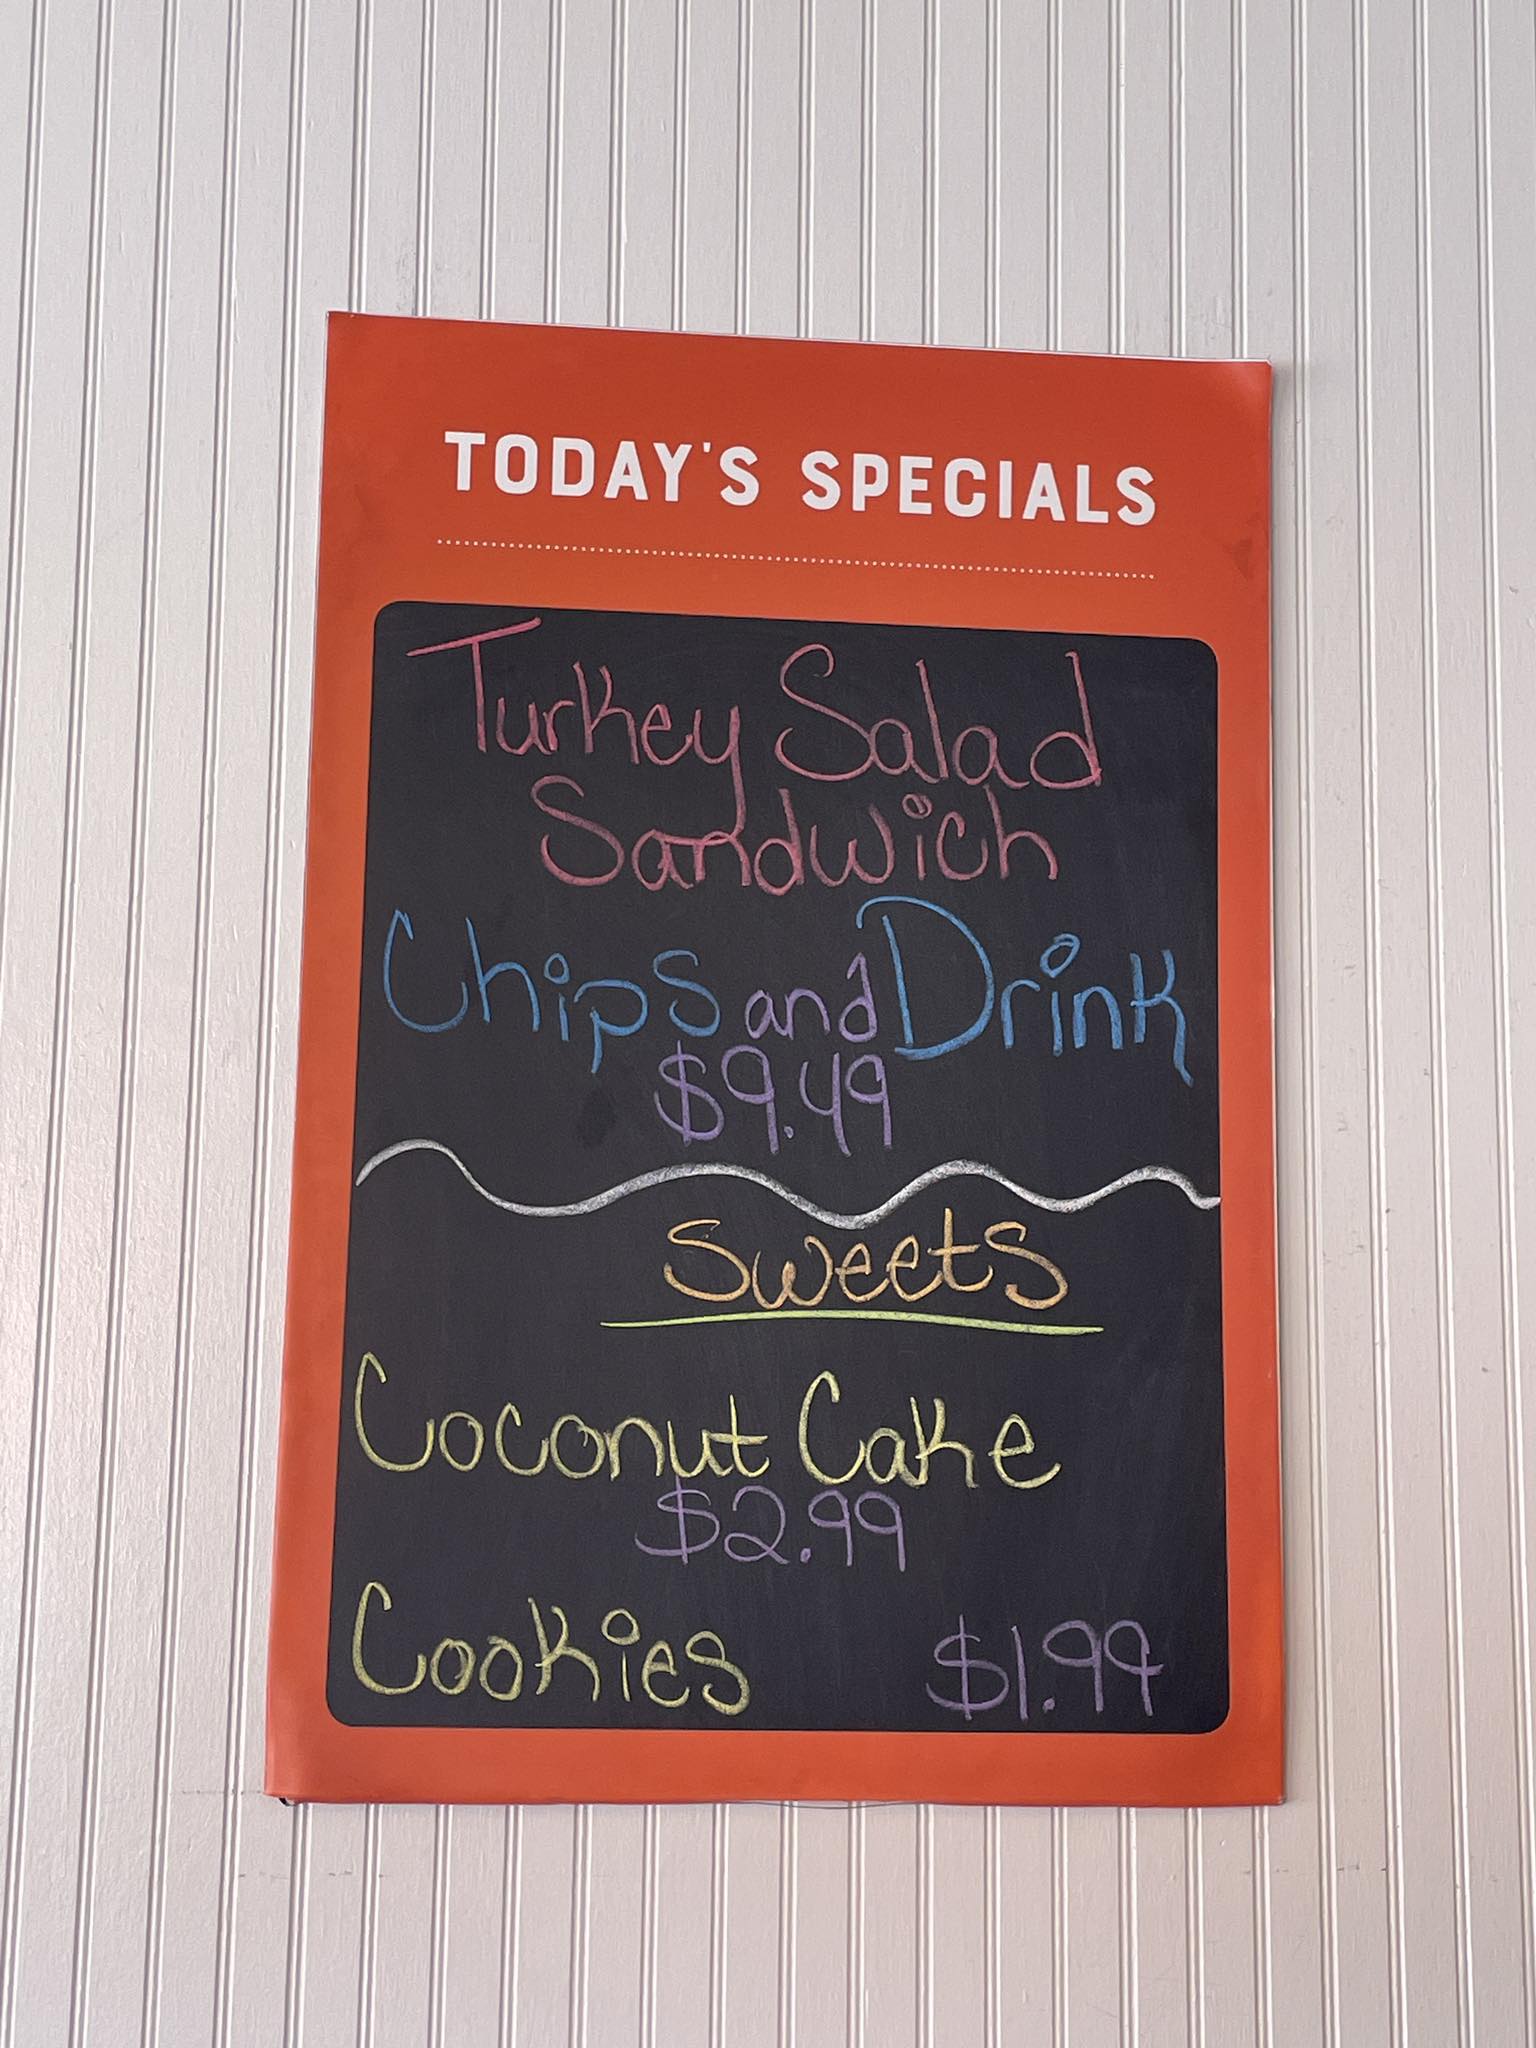 TODAY'S SPECIALS
Turkey Salad
Sandwich
Chips and Drink
$9.49
Sweets
Coconut Cake
$2.99
Cookies $1.99